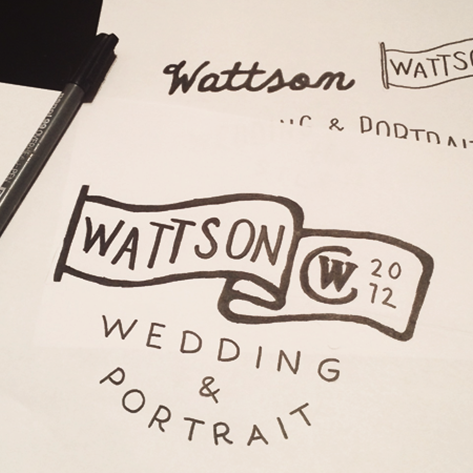 Wattson
WATTSO
& PORTRAIT
WATTSON
CW
20
12
WEDDING
&
PORTRAIT